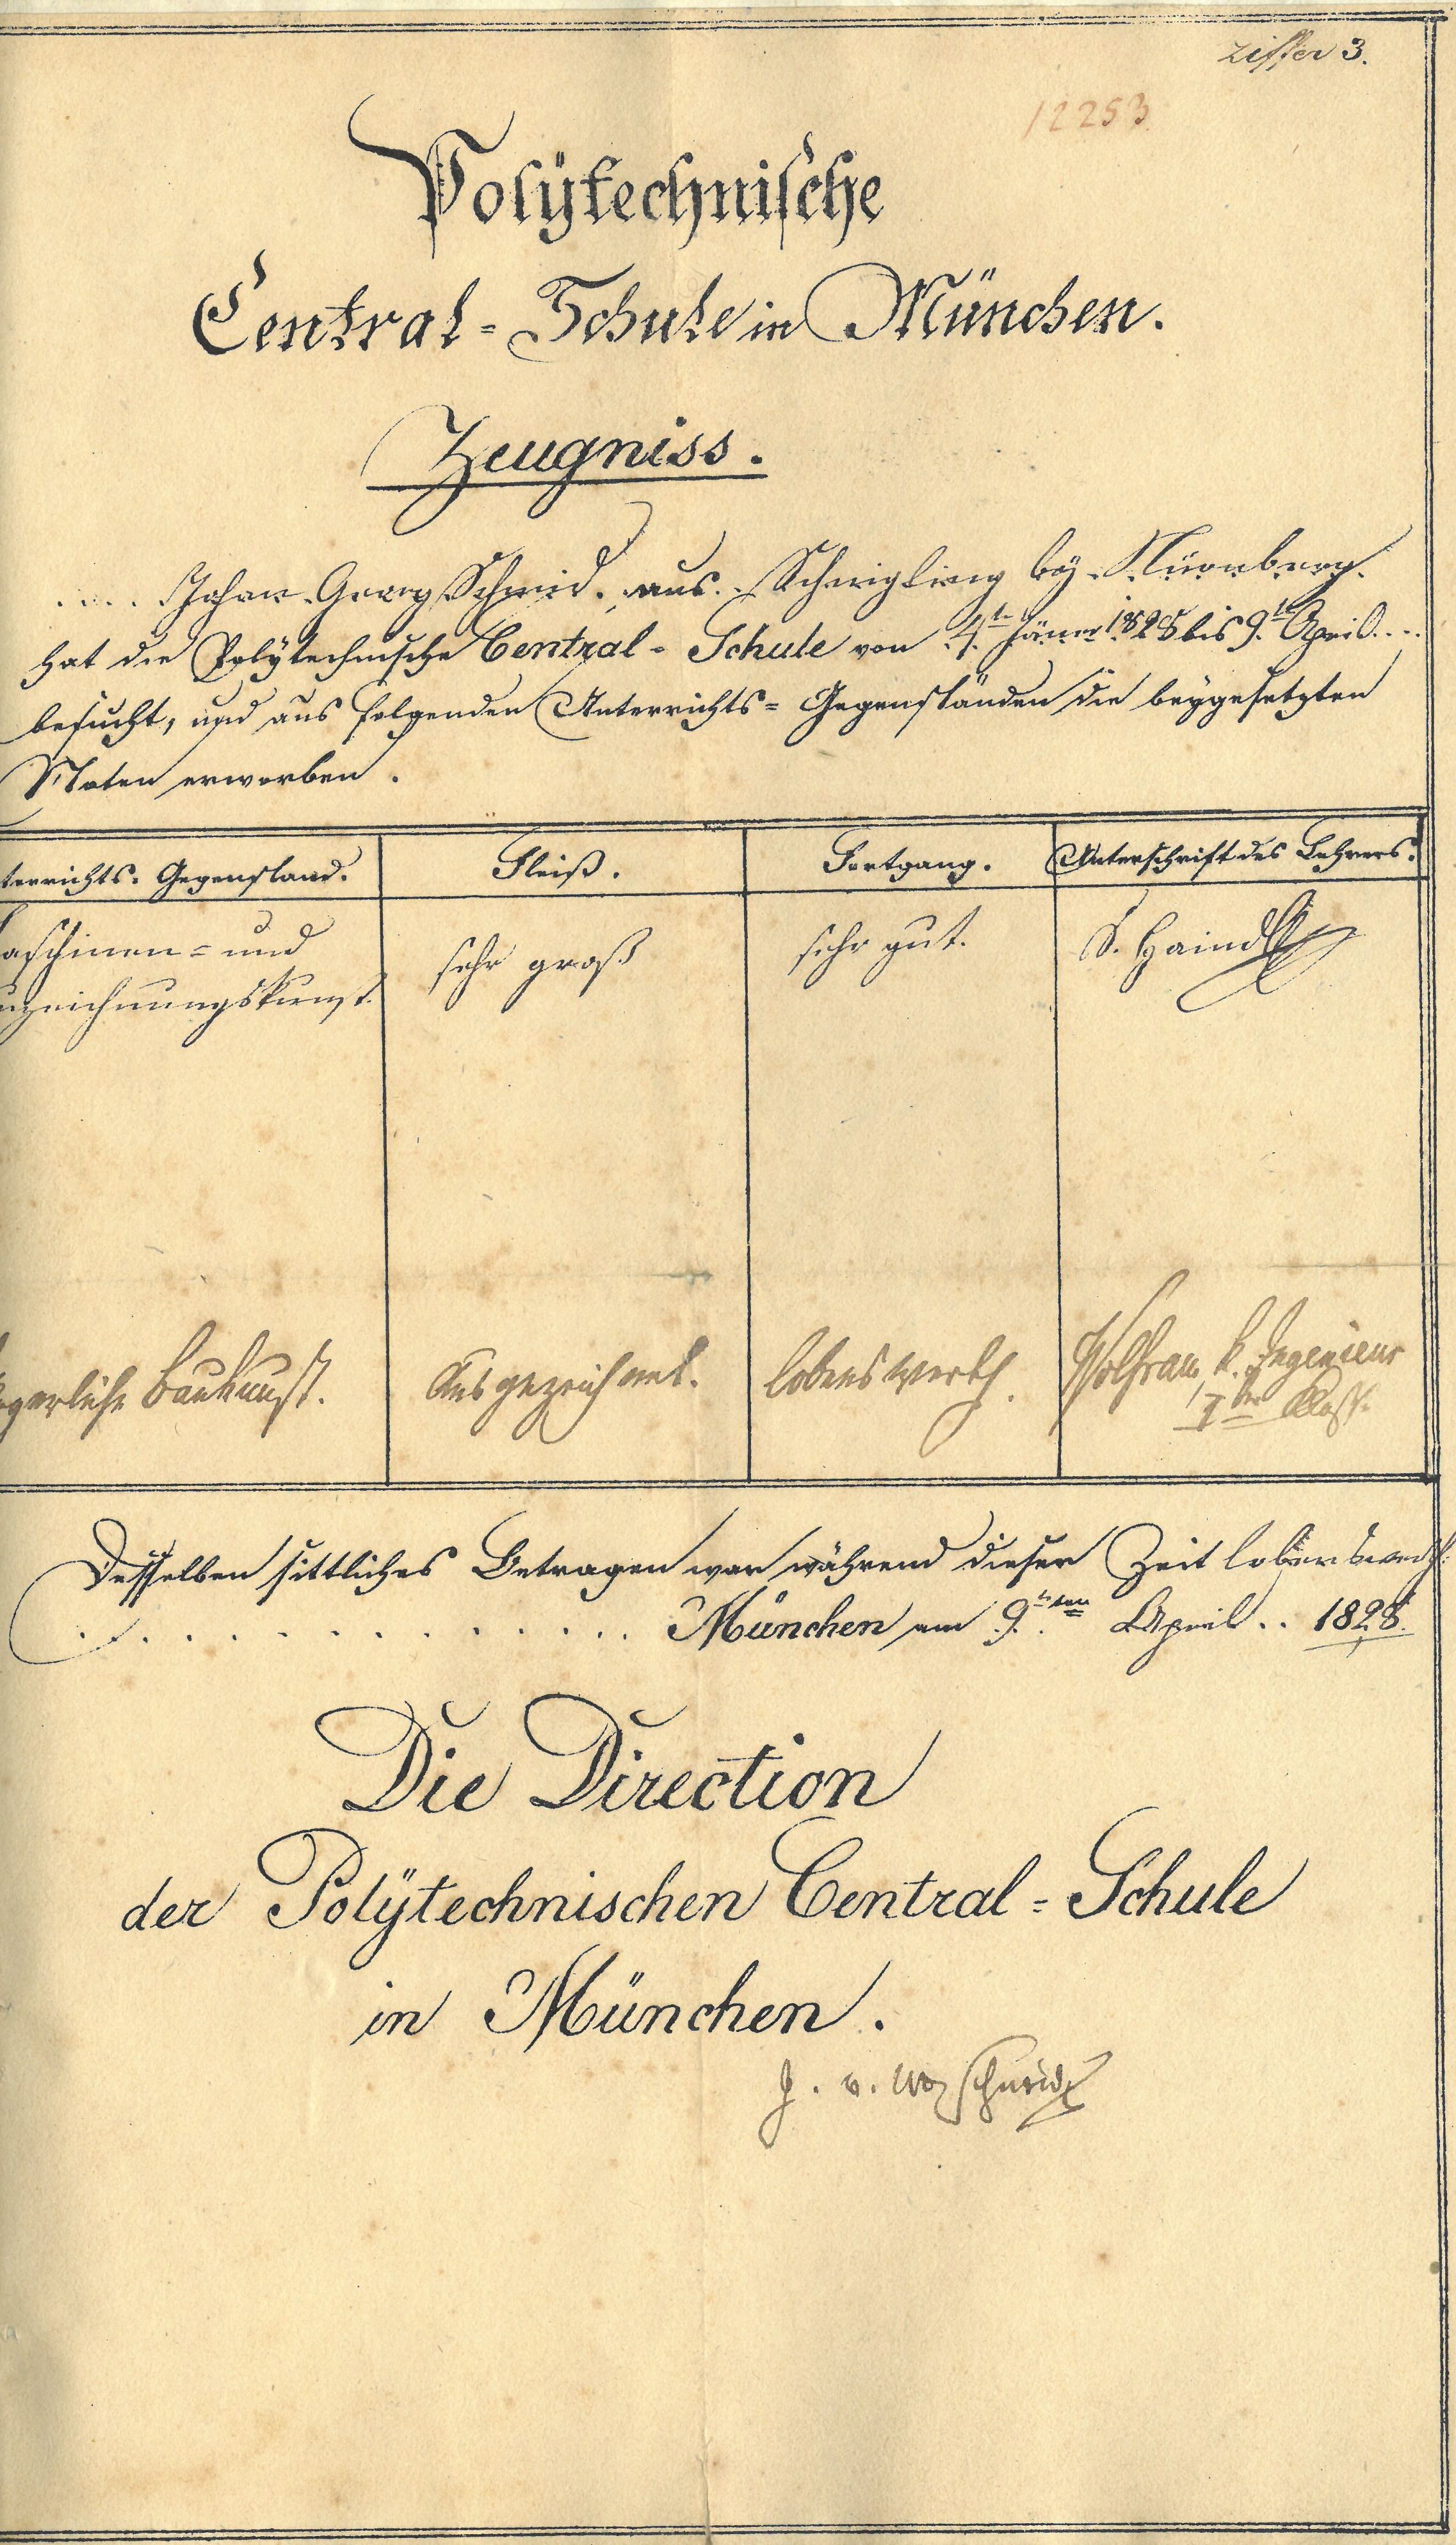 Ziffer 3.
12253
Polÿtechnische
Central-Schule in München.
Zeugniss.
.... Johan Georg Schmid. aus. Schnigling beÿ Nürnberg.
hat die Polÿtechnische Central-Schule von 4.te Jäner 1828 bis 9.te April....
besucht, und aus folgenden Unterrichts-Gegenständen die beygesetzten
Noten erworben.
terrichts-Gegenstand. Fleiß. Fortgang. Unterschrift des Lehrers.
aschinen- und sehr groß sehr gut. S. Haindl
nzeichnungskunst.
gerliche Baukunst. Ausgezeichnet. lobenswerth. Wolfram k. Ingenieur
I ter Klasse
Desselben sittliches Betragen war während dieser Zeit lobenswerth.
München am 9.ten April .. 1828.
Die Direction
der Polÿtechnischen Central-Schule
in München.
J. v.